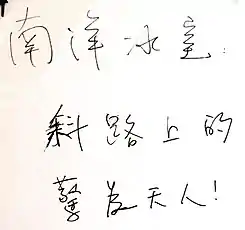 南洋冰室:
斜路上的
驚為天人!